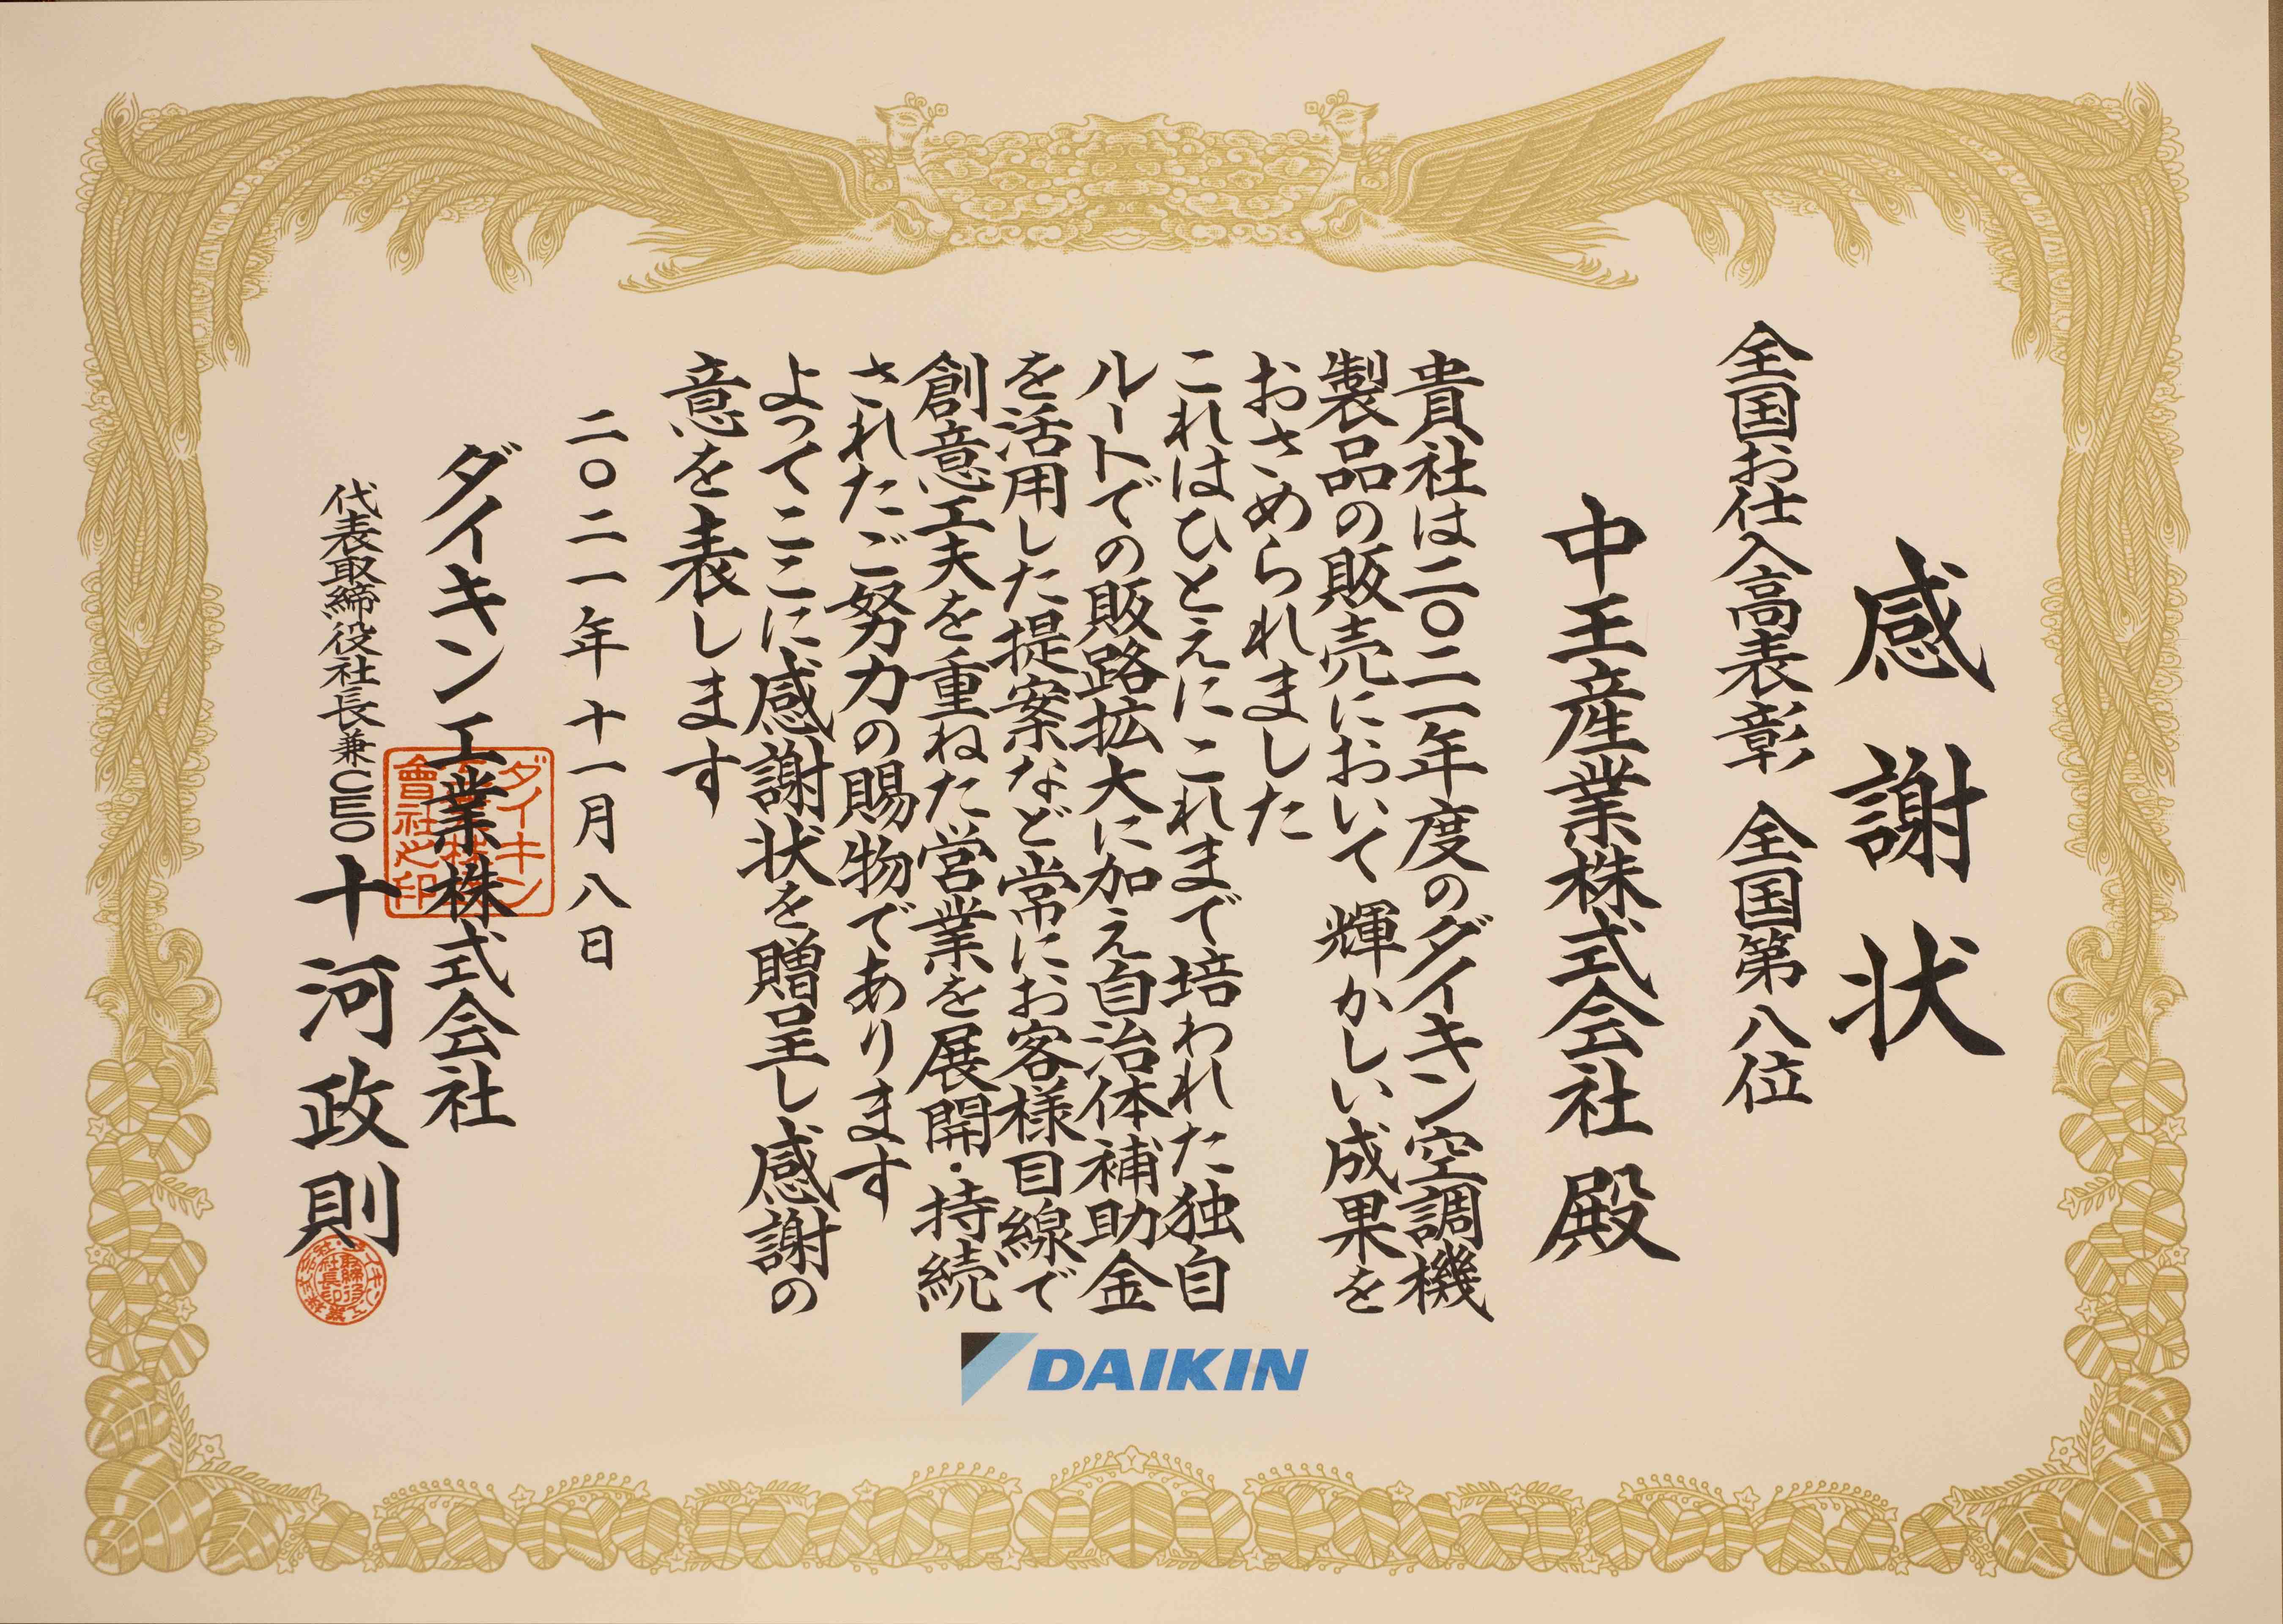 感謝状
全国お仕入高表彰 全国第八位
中王産業株式会社 殿
貴社は二〇二一年度のダイキン空調機
製品の販売において 輝かしい成果を
おさめられました
これはひとえに これまで培われた独自
ルートでの販路拡大に加え自治体補助金
を活用した提案など常にお客様目線で
創意工夫を重ねた営業を展開・持続
されたご努力の賜物であります
よってここに感謝状を贈呈し感謝の
意を表します
二〇二一年十一月八日
ダイキン工業株式会社
ダイキン
會社之印
代表取締役社長兼CEO 十河政則
取締役
社長印
DAIKIN